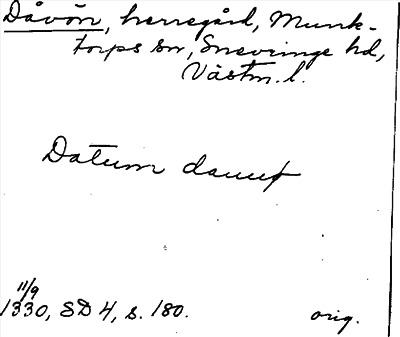 Dåvön, herregård, Munk-
torps sn, Snevringe hd,
Västm. l.
Datum
11/9
1330, SD 4, s. 180. orig.